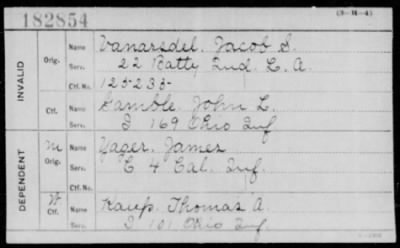 182854
INVALID
Orig.
Name Vanarsdel, Jacob S.
Serv. 22 Batty Ind. L. A.
Ctf. No. 125233
Ctf.
Name Gamble, John L.
Serv. I 169 Ohio Inf
DEPENDENT
M
Orig.
Name Yager, James
Serv. C 4 Cal. Inf.
Ctf. No.
W
Ctf.
Name Kaup, Thomas A.
Serv. I 101 Ohio Inf